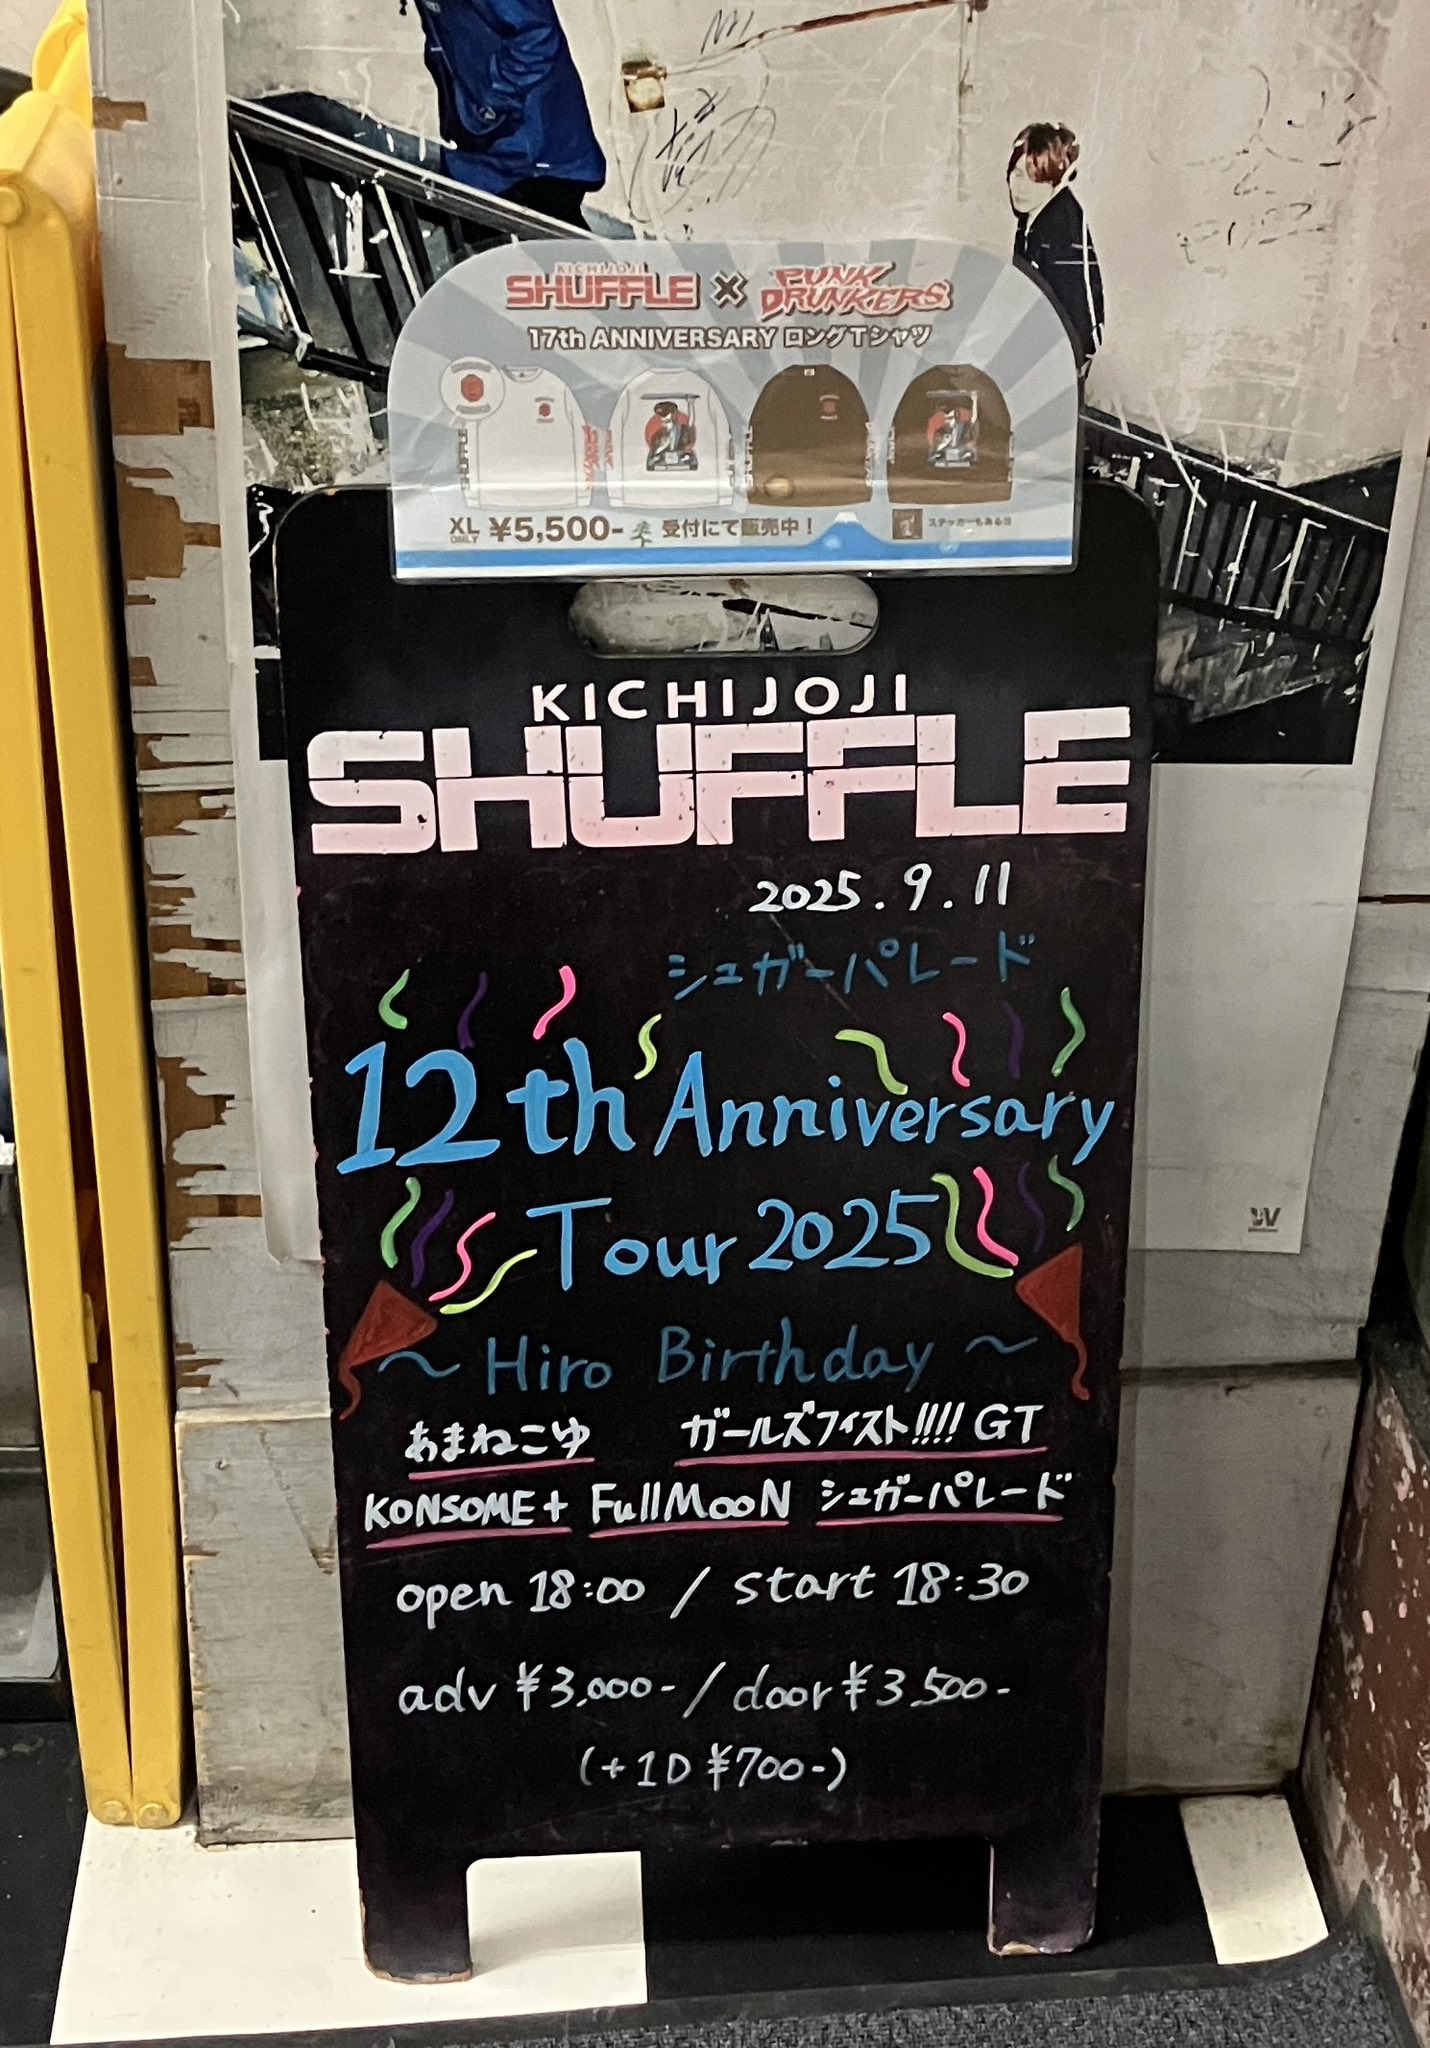 KICHIJOJI
SHUFFLE × PUNK DRUNKERS
17th ANNIVERSARY ロングTシャツ
XL ONLY ¥5,500- 受付にて販売中！ ステッカーもあるヨ
KICHIJOJI
SHUFFLE
2025.9.11
シュガーパレード
12th Anniversary
Tour 2025
～Hiro Birthday～
あまねこゆ ガールズフィスト!!!! GT
KONSOME+ FullMooN シュガーパレード
open 18:00 / start 18:30
adv ¥3,000- / door ¥3,500-
(+1D ¥700-)